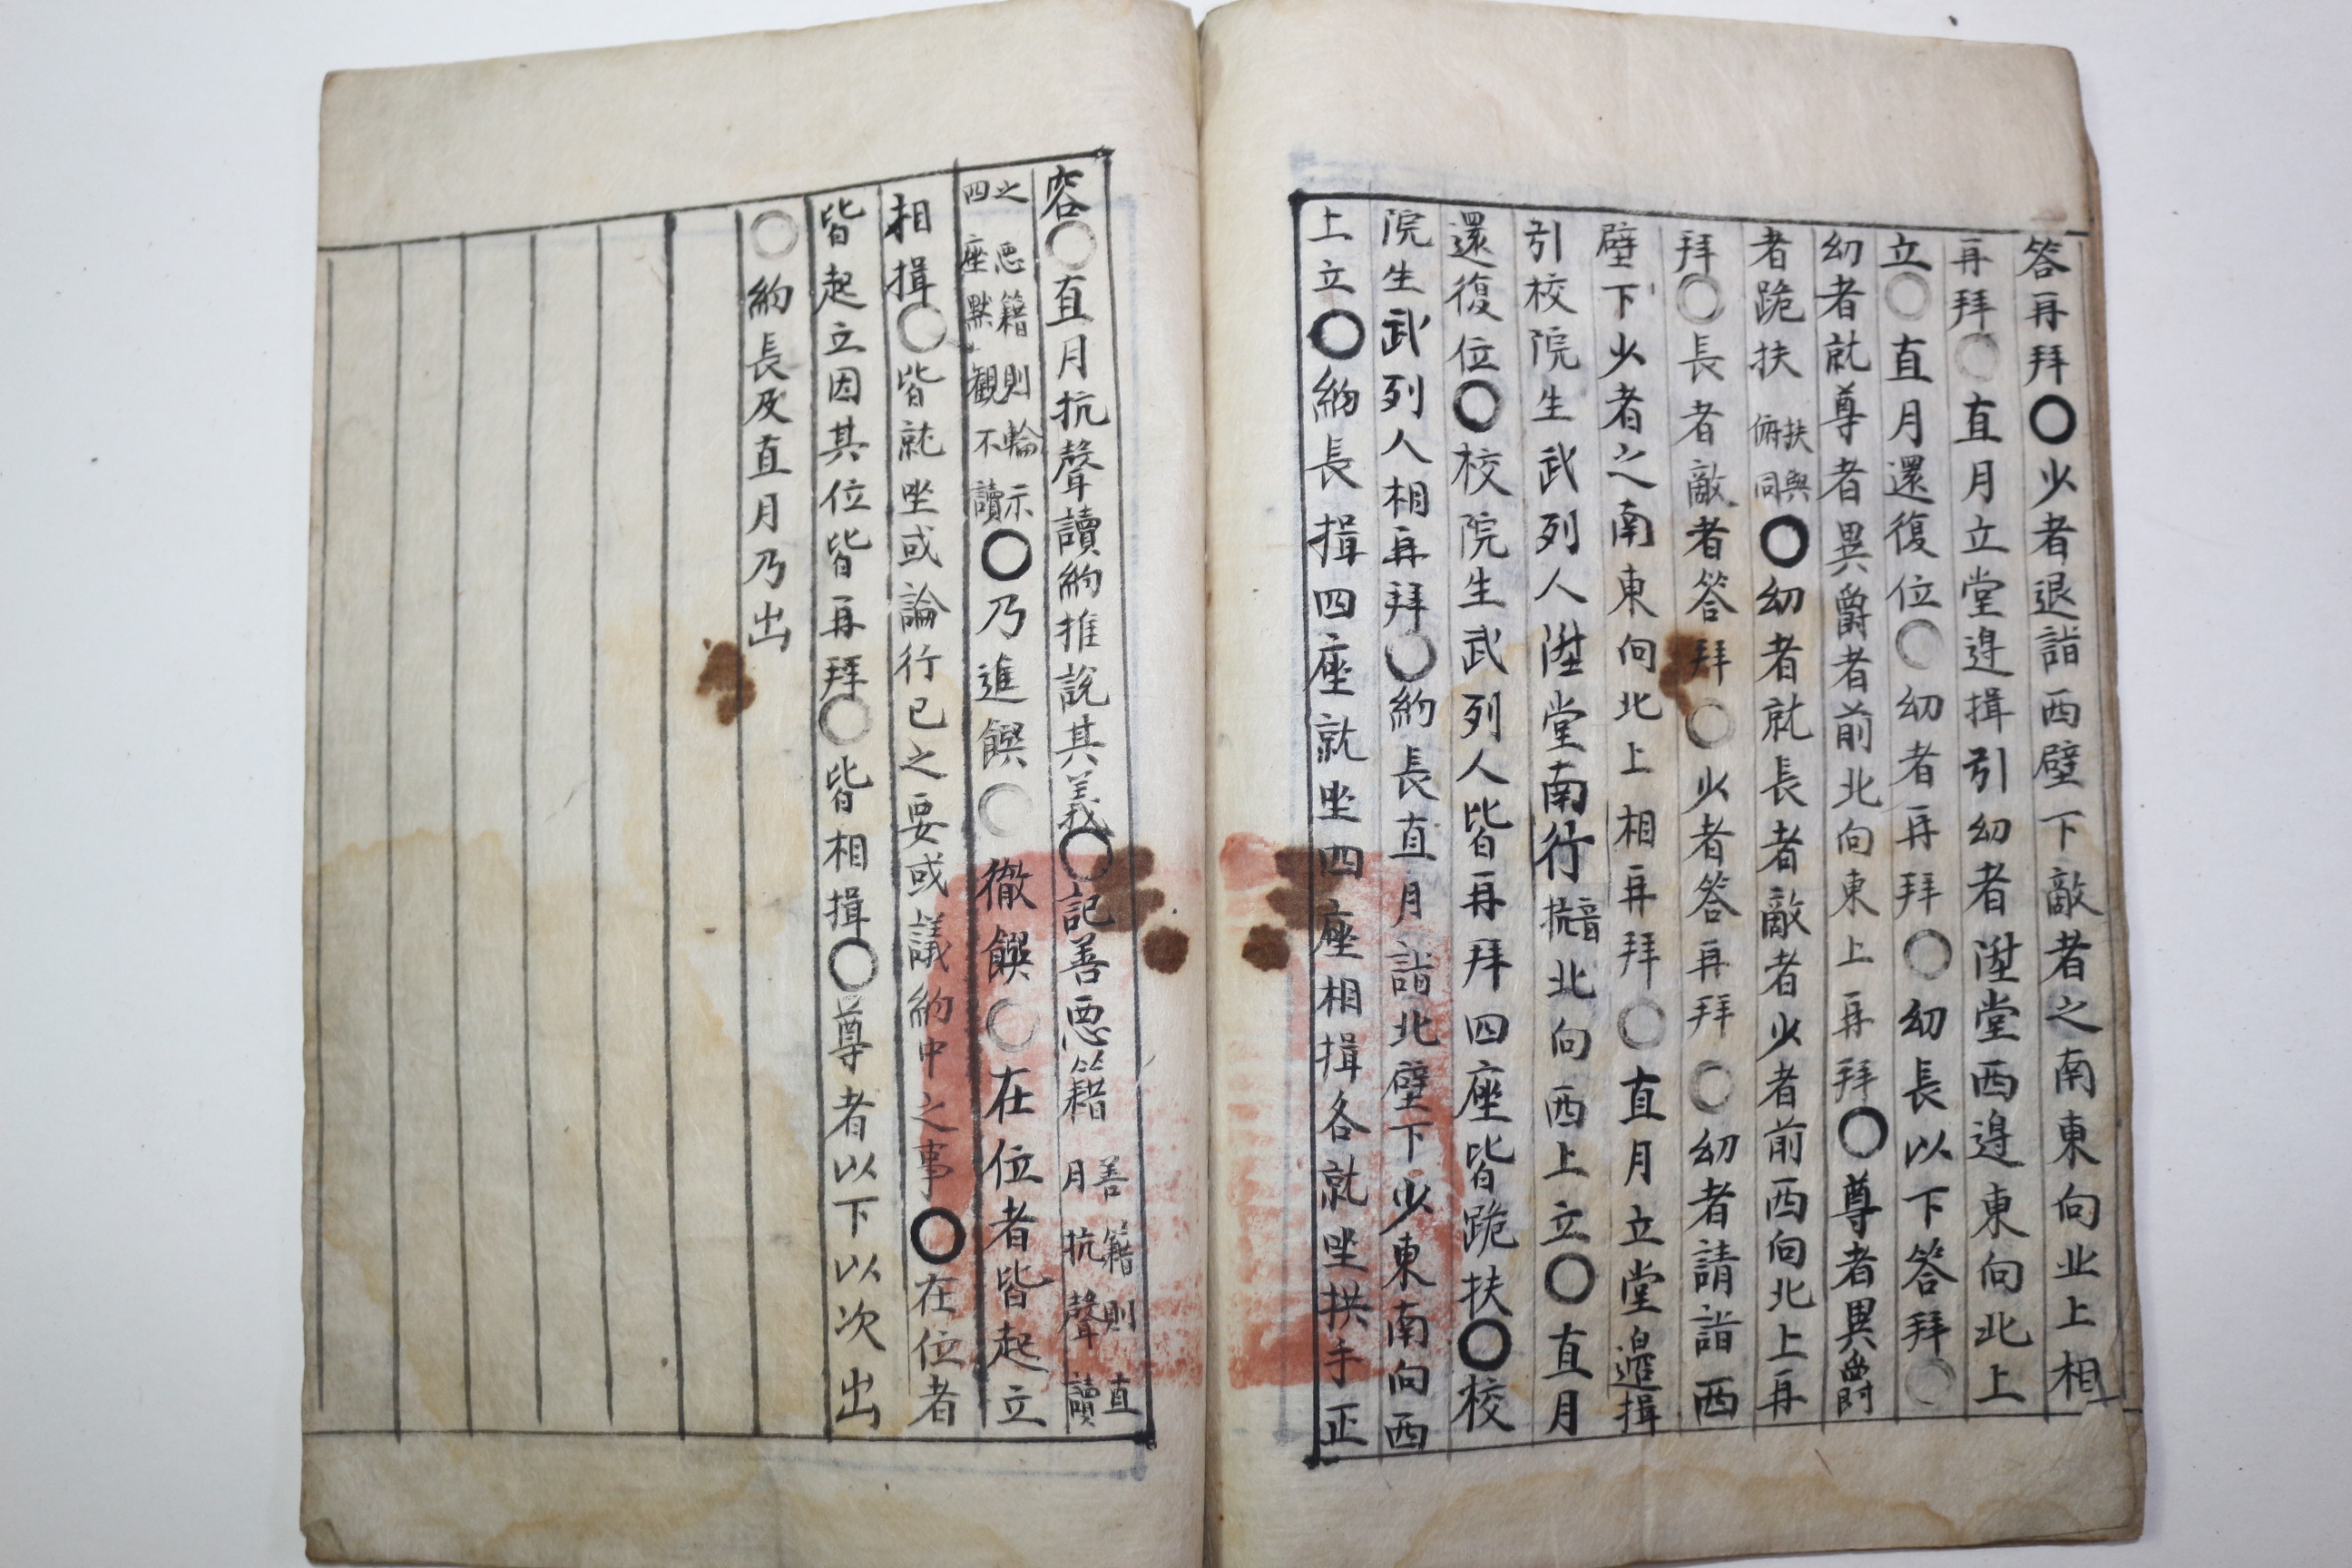 答再拜○少者退詣西壁下敵者之南東向北上相
再拜○直月立堂邉揖引幼者陞堂西邉東向北上
立○直月還復位○幼者再拜○幼長以下答拜○
幼者就尊者異爵者前北向東上再拜○尊者異爵
者跪扶扶與俯同○幼者就長者敵者少者前西向北上再
拜○長者敵者答拜○少者答再拜○幼者請詣西
壁下少者之南東向北上相再拜○直月立堂邉揖
引校院生武列人陞堂南行音抗北向西上立○直月
還復位○校院生武列人皆再拜四座皆跪扶○校
院生武列人相再拜○約長直月詣北壁下少東南向西
上立○約長揖四座就坐四座相揖各就坐拱手正
容○直月抗聲讀約推說其義○記善惡籍善籍則直月抗聲讀
之惡籍則輪示四座默觀不讀○乃進饌○徹饌○在位者皆起立
相揖○皆就坐或論行已之要或議約中之事○在位者
皆起立因其位皆再拜○皆相揖○尊者以下以次出
○約長及直月乃出